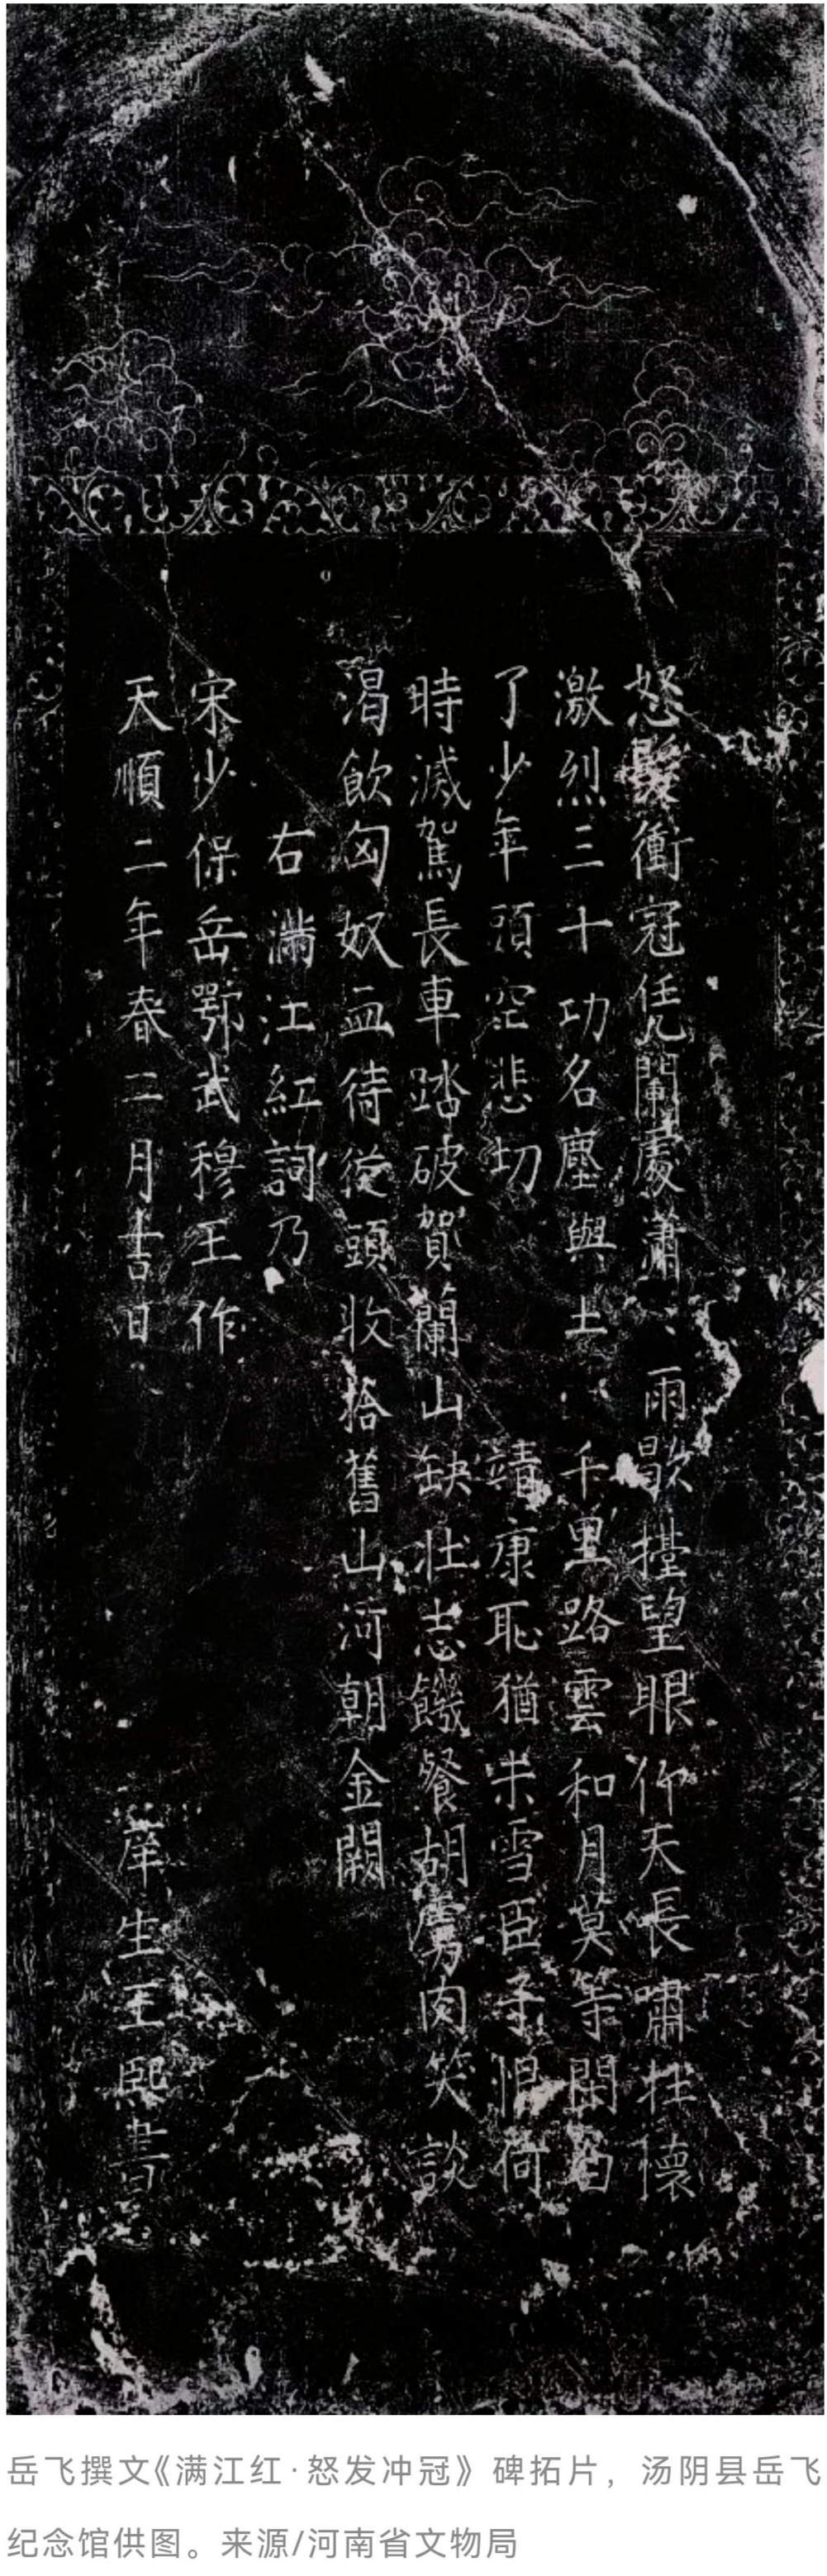 怒髮衝冠凭闌處瀟、雨歇擡望眼仰天長嘯壯懷
激烈三十功名塵與土八千里路雲和月莫等閒白
了少年頭空悲切 靖康恥猶未雪臣子恨何
時滅駕長車踏破賀蘭山缺壯志饑餐胡虜肉笑談
渴飲匈奴血待從頭收拾舊山河朝金闕
右滿江紅詞乃
宋少保岳鄂武穆王作
天順二年春二月吉日 庠生王熙書
岳飞撰文《满江红·怒发冲冠》碑拓片，汤阴县岳飞
纪念馆供图。来源/河南省文物局